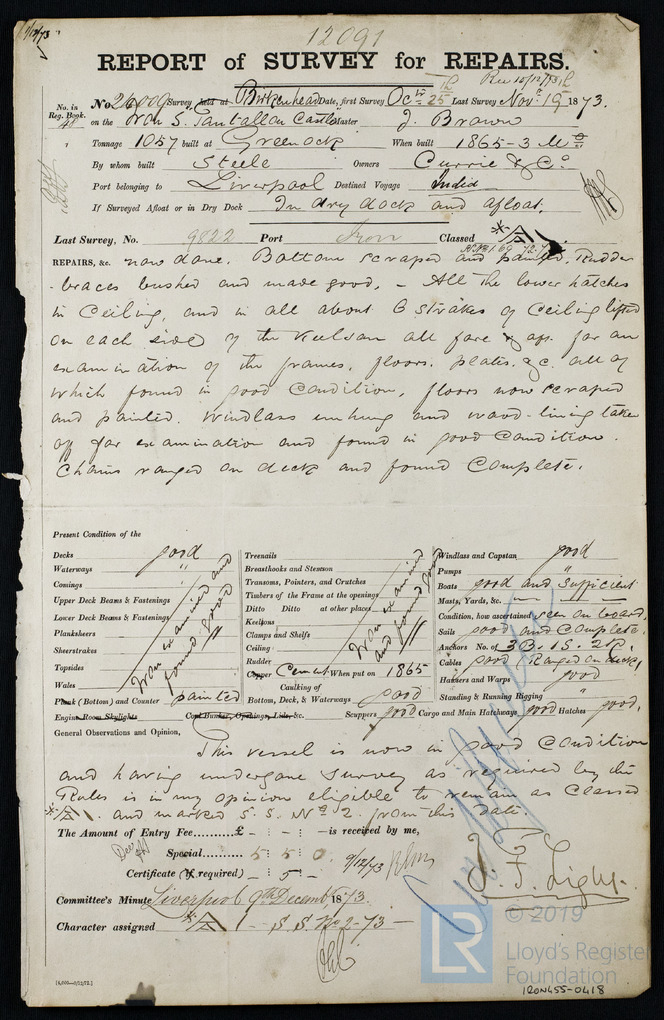 9/12/73
12091
REPORT of SURVEY for REPAIRS.
Rec 10/12/73
No. in Reg. Book. No 26,009 Survey held at Birkenhead Date, first Survey Octr 25th Last Survey Novr 19th 1873.
41 on the Iron S. "Tantallon Castle" Master J. Brown
Tonnage 1057 built at Greenock When built 1865-3 Mo
By whom built Steele Owners Currie & Co
Port belonging to Liverpool Destined Voyage India
If Surveyed Afloat or in Dry Dock In dry dock and afloat.
Last Survey, No. 9822 Port Classed A
REPAIRS, &c. now done. Bottom scraped and painted. Rudder
-braces bushed and made good. - All the lower hatches
in Ceiling, and in all about 6 strakes of Ceiling lifted
on each side of the Keelson all fore & aft for an
examination of the frames, floors, plates, &c. all of
which found in good condition, floors now scraped
and painted. Windlass unhung and wood-lining taken
off for examination and found in good condition.
Chains ranged on deck and found complete.
Present Condition of the
Decks good
Waterways "
Comings
Upper Deck Beams & Fastenings
Lower Deck Beams & Fastenings
Planksheers
Sheerstrakes
Topsides
Wales
Iron examined and
found good
Plank (Bottom) and Counter painted
Engine Room Skylights
Treenails
Breasthooks and Stemson
Transoms, Pointers, and Crutches
Timbers of the Frame at the openings
Ditto Ditto at other places
Keelsons
Clamps and Shelfs
Ceiling
Rudder
Iron examined
and found good
Copper Cement When put on 1865
Caulking of
Bottom, Deck, & Waterways good
Coal Bunker, Openings, Lids, &c. Scuppers good Cargo and Main Hatchways good Hatches good.
Windlass and Capstan good
Pumps "
Boats good and sufficient
Masts, Yards, &c.
Condition, how ascertained seen on board.
Sails good and complete.
Anchors No. of 3B. 1S. 2K.
Cables good (Ranged on deck)
Hawsers and Warps good
Standing & Running Rigging "
General Observations and Opinion,
This vessel is now in good condition
and having undergone survey as required by the
Rules is in my opinion eligible to remain as Classed
A. and marked S.S. No 2. from this date.
The Amount of Entry Fee.........£ - : - : - is received by me,
Special..... 5 5 0. 9/12/73
Certificate (if required) - 5 -
J. F. Light.
Committee's Minute Liverpool 9th December 1873.
Character assigned A S.S. No 2-73 -
LR © 2019
Lloyd's Register
Foundation
IRON455-0418